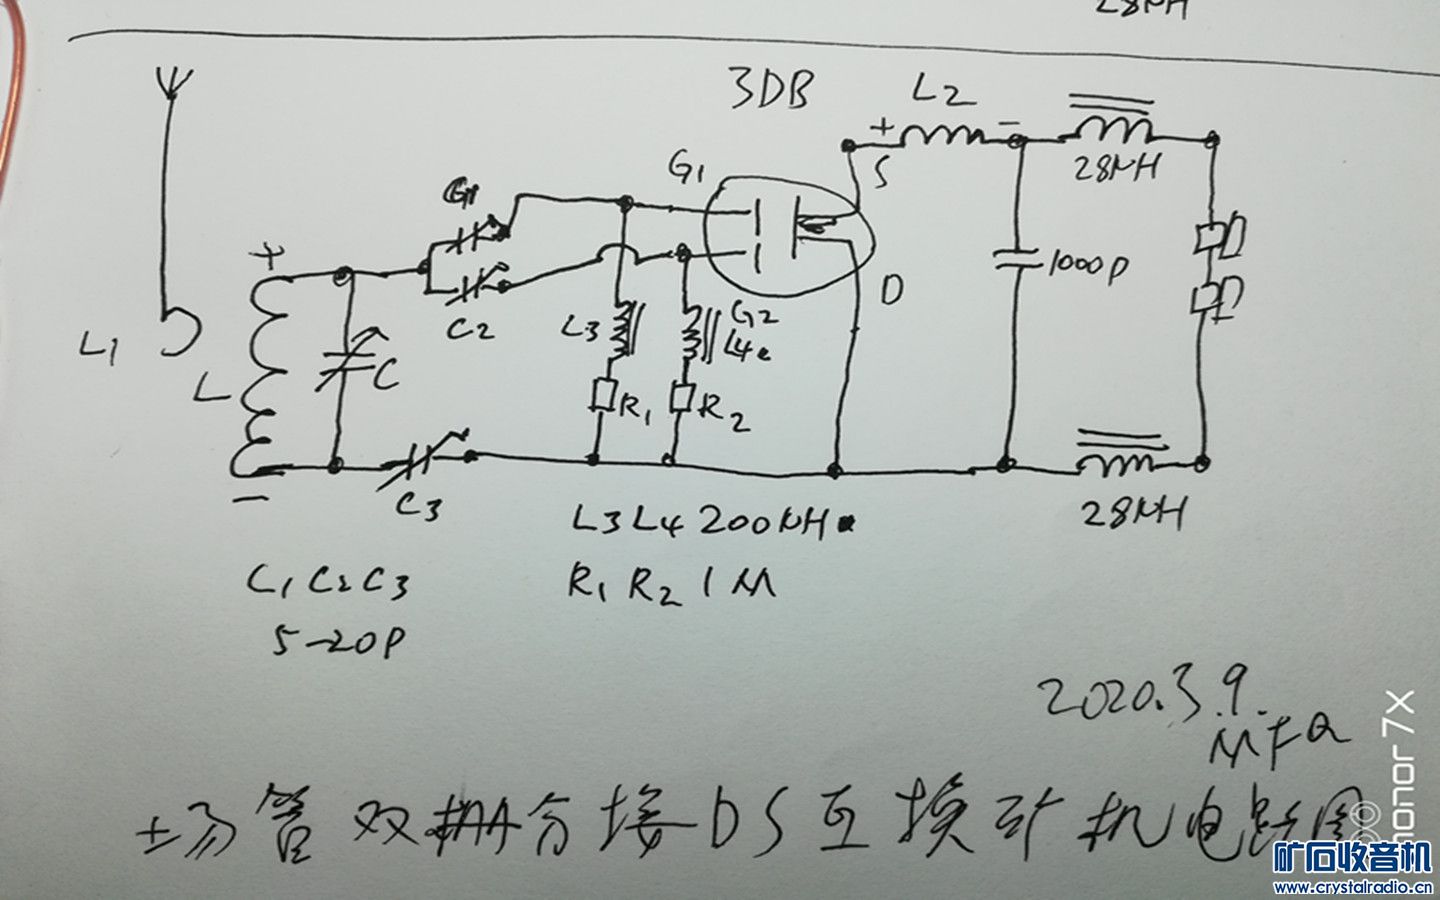 28μH
3DB
L2
G1
+
-
S
28μH
C1
+
C2
L3
G2
L4
D
1000P
L1
L
C
R1
R2
-
C3
L3 L4 200μH
28μH
C1 C2 C3
R1 R2 1M
5-20P
2020.3.9.
MFQ
场管双栅分接DS互换矿机电路图
honor 7X
矿石收音机
www.crystalradio.cn